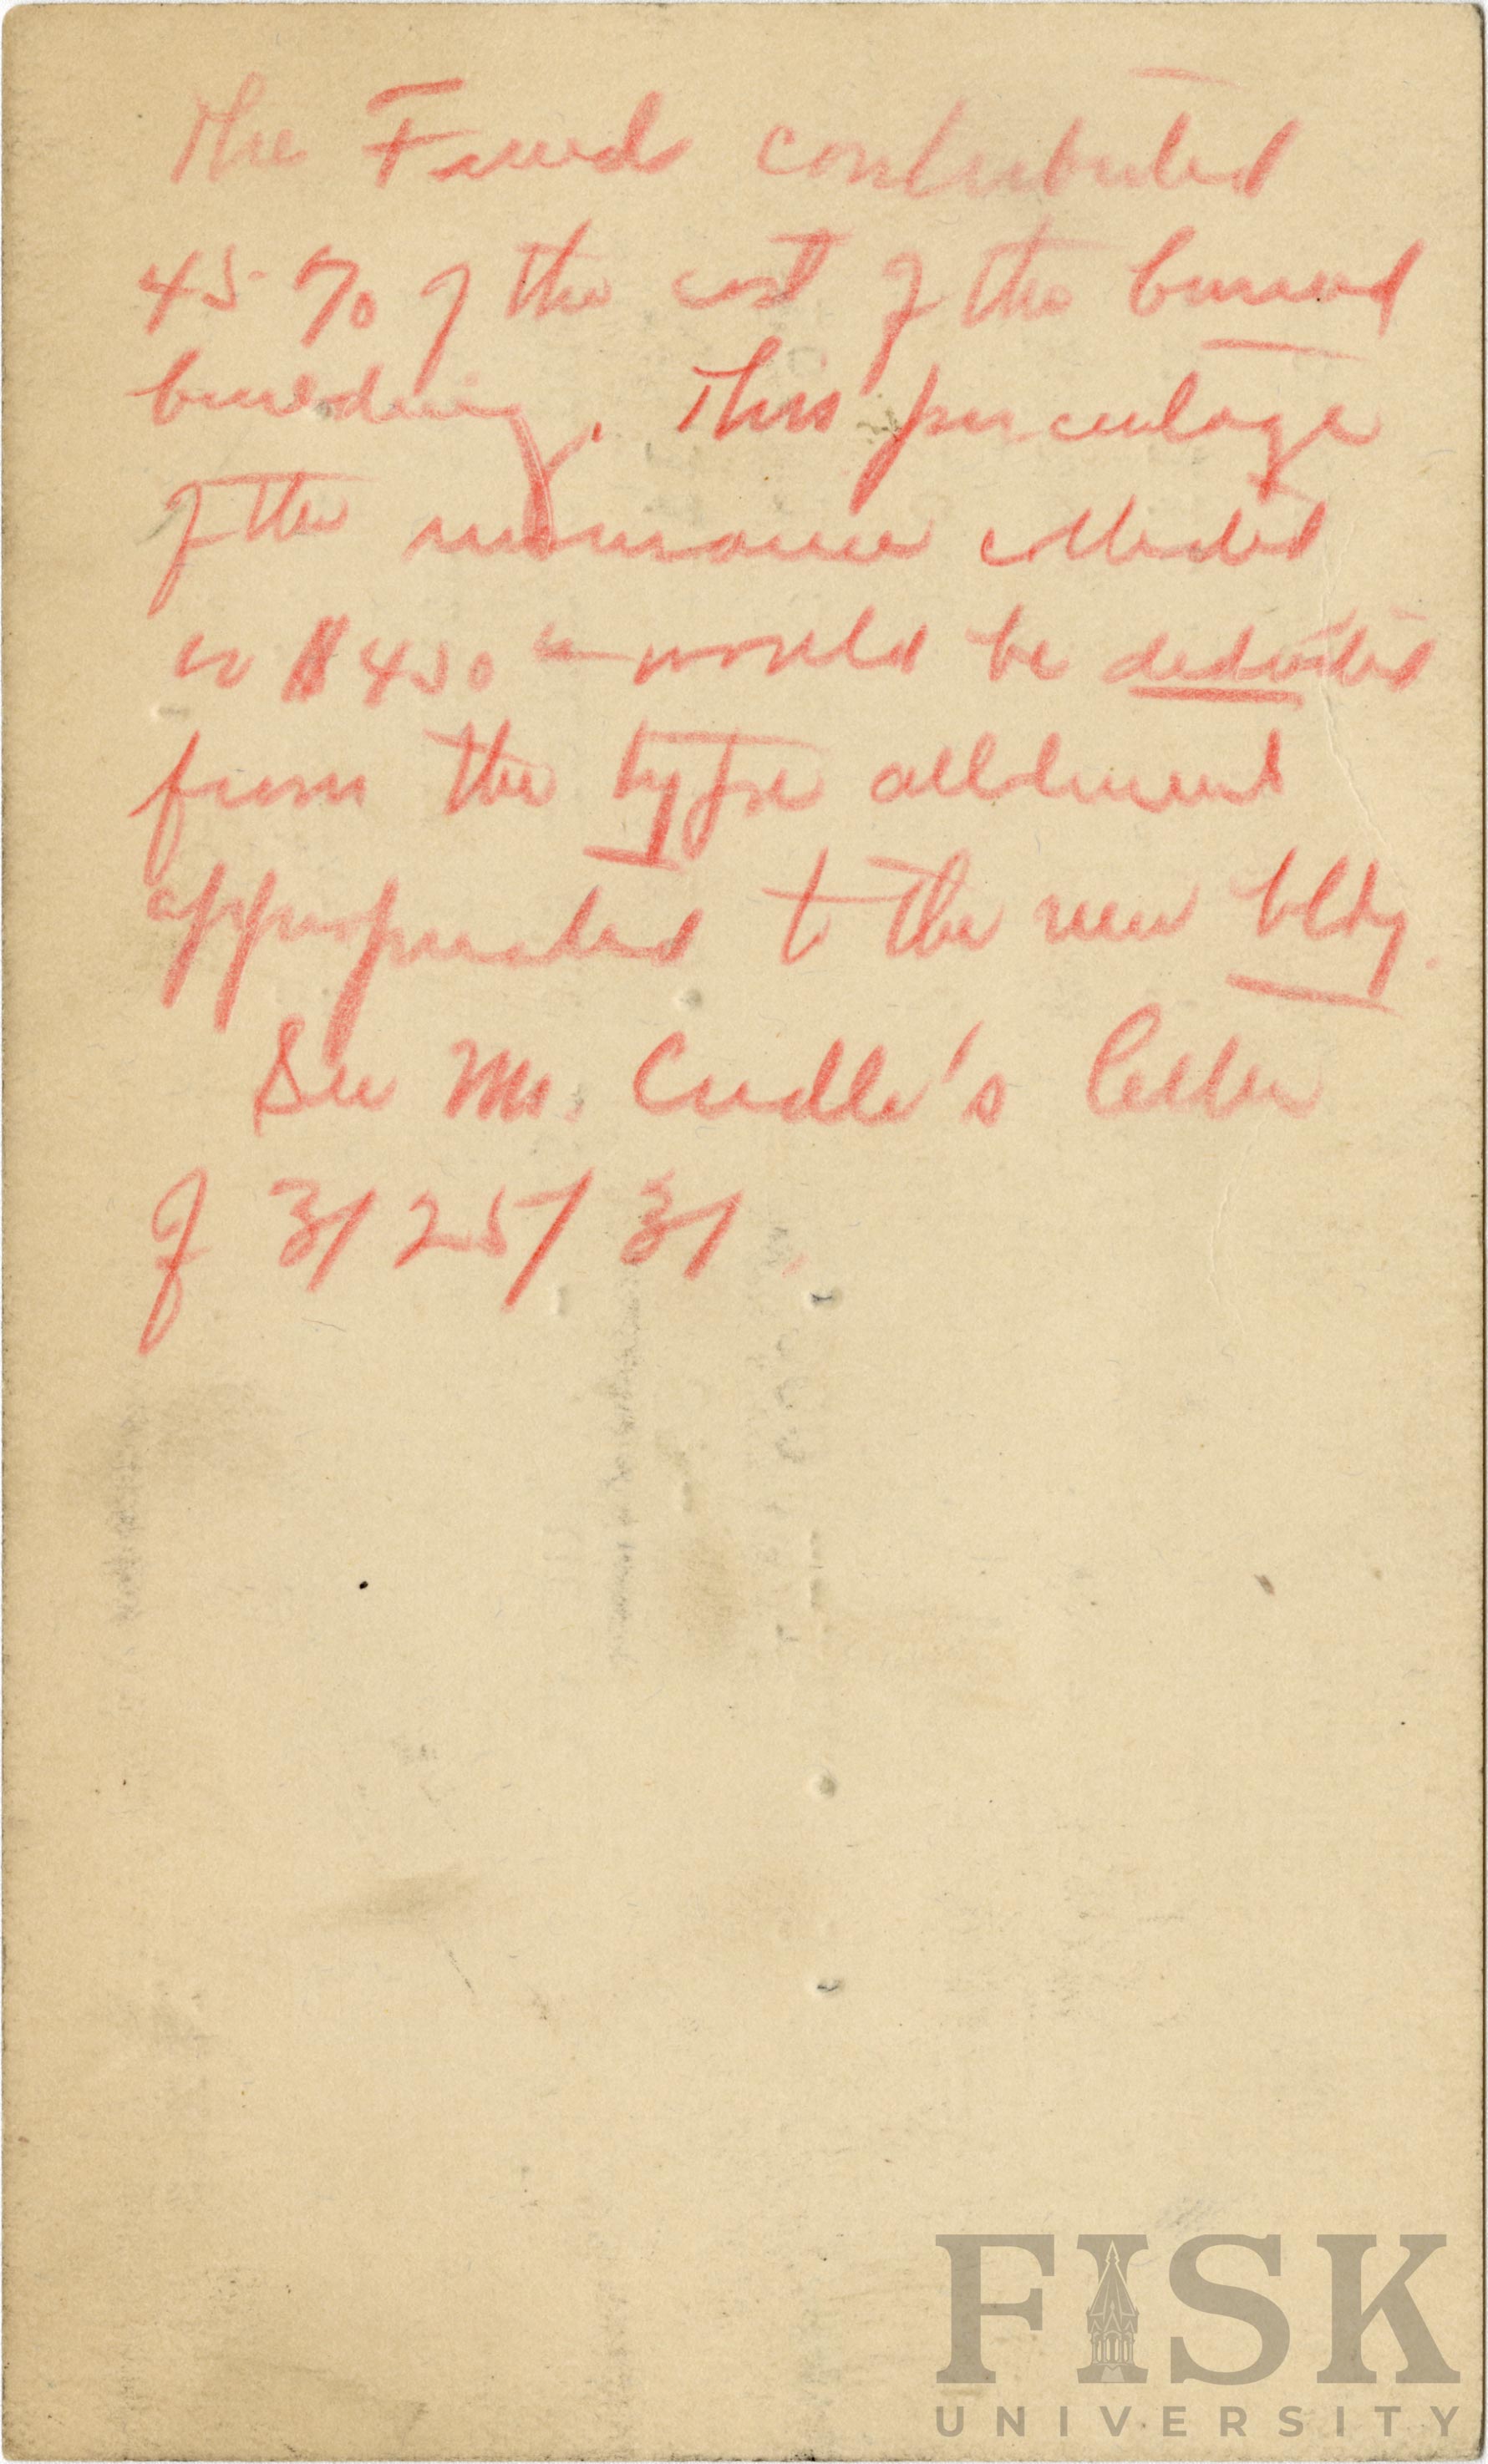 The Fund contributed
45% of the cost of the burned
building. This percentage
of the insurance collected
or $450 00 would be deducted
from the type allotment
appropriated to the new bldg.
See Mr. Credle's letter
of 3/25/31.
FISK
UNIVERSITY